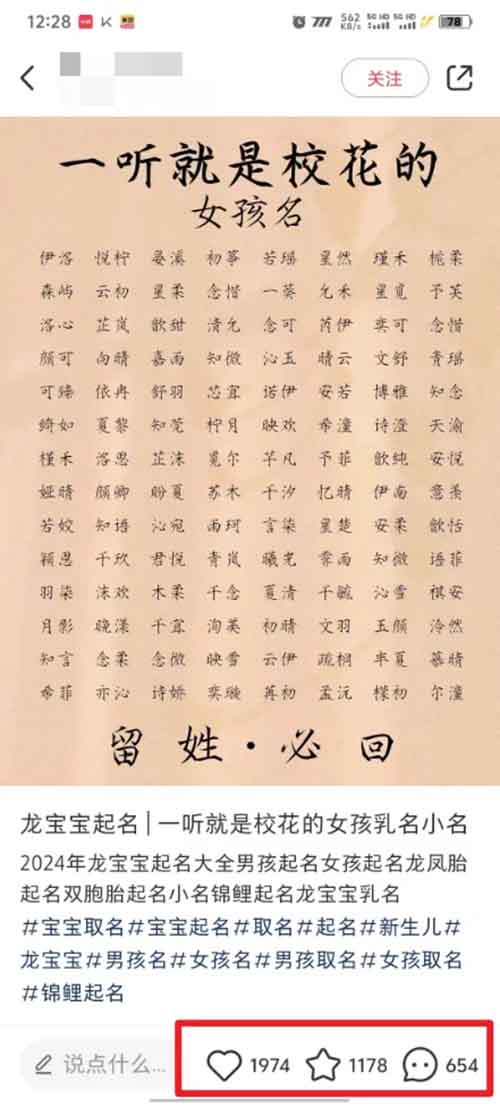 12:28
562 KB/s
5G HD 5G HD
78
关注
一听就是校花的
女孩名
伊洛 悦柠 晏溪 初筝 若瑶 星然 瑾禾 栀柔
森屿 云初 星柔 念惜 一葵 允禾 星觅 予芙
洛心 芷岚 歆甜 清允 念可 芮伊 奕可 念惜
颜可 向晴 嘉雨 知微 沁玉 晴云 文舒 青瑶
可臻 依冉 舒羽 芯宜 诺伊 安若 博雅 知念
绮如 夏黎 知莞 柠月 映欢 希潼 诗滢 天渝
槿禾 洛思 芷沫 觅尔 芊凡 予菲 歆纯 安悦
娅晴 颜卿 盼夏 苏木 千汐 忆晴 伊南 意茶
若姣 知语 沁宛 雨珂 言染 星楚 安柔 歆恬
颖思 千玖 君悦 青岚 曦光 霏雨 知微 语菲
羽染 沫欢 木柔 千念 夏清 千毓 沁雪 祺安
月影 晚漾 千宜 洵英 初晴 文羽 玉颜 泠然
知言 念柔 念微 映雪 云伊 疏桐 半夏 慕晴
希菲 亦沁 诗娇 奕璇 苒初 孟沅 檬初 尔潼
留姓·必回
龙宝宝起名|一听就是校花的女孩乳名小名
2024年龙宝宝起名大全男孩起名女孩起名龙凤胎
起名双胞胎起名小名锦鲤起名龙宝宝乳名
#宝宝取名#宝宝起名#取名#起名#新生儿#
龙宝宝#男孩名#女孩名#男孩取名#女孩取名
#锦鲤起名
说点什么... 1974 1178 654